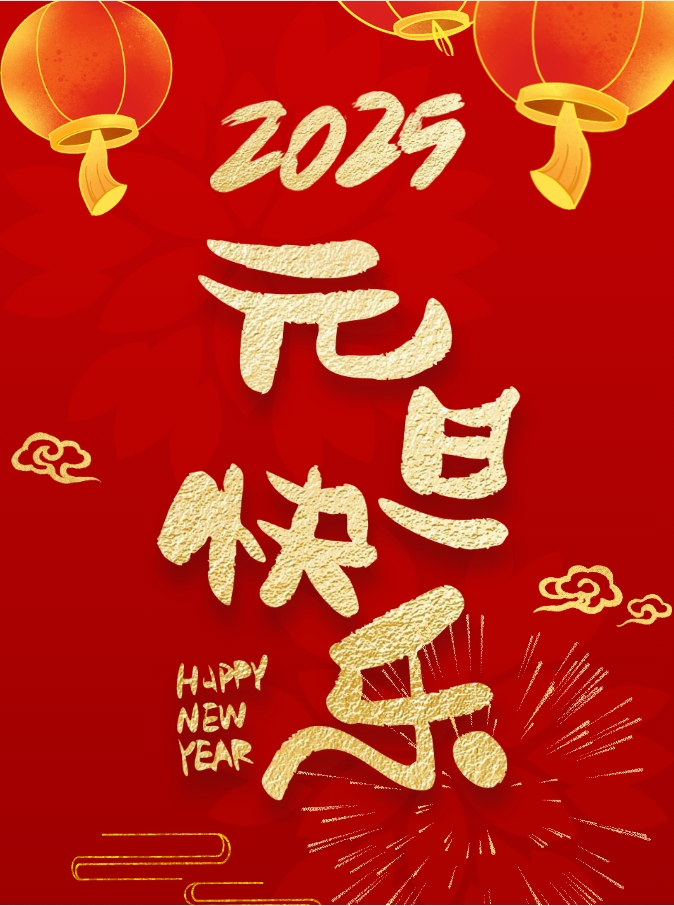 2025
元旦
快乐
HAPPY
NEW
YEAR